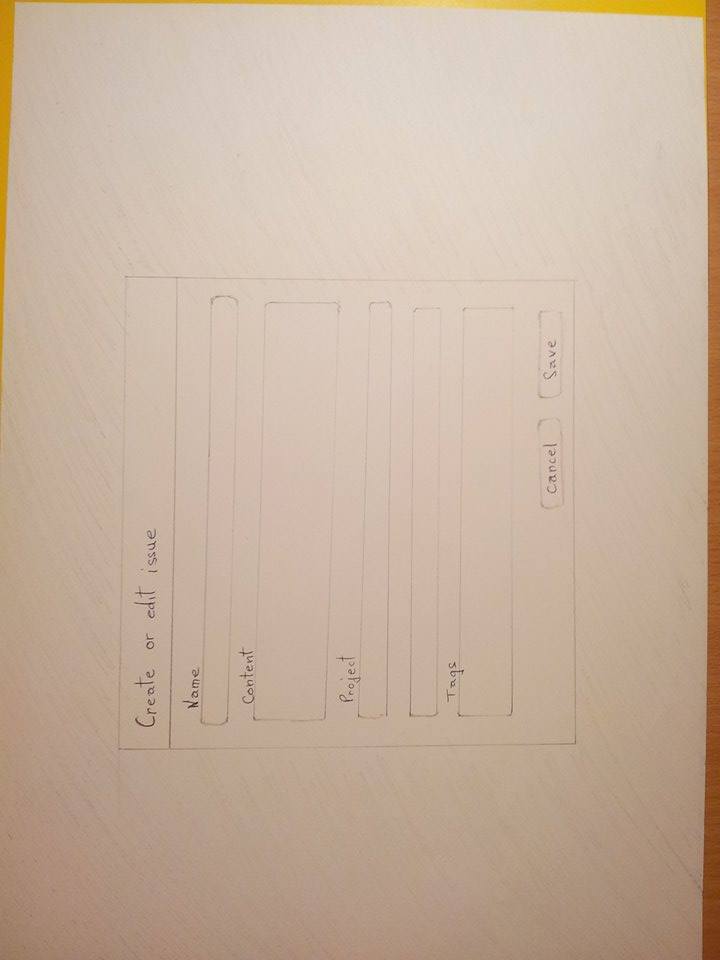 Create or edit issue
Name
Content
Project
Tags
Cancel
Save